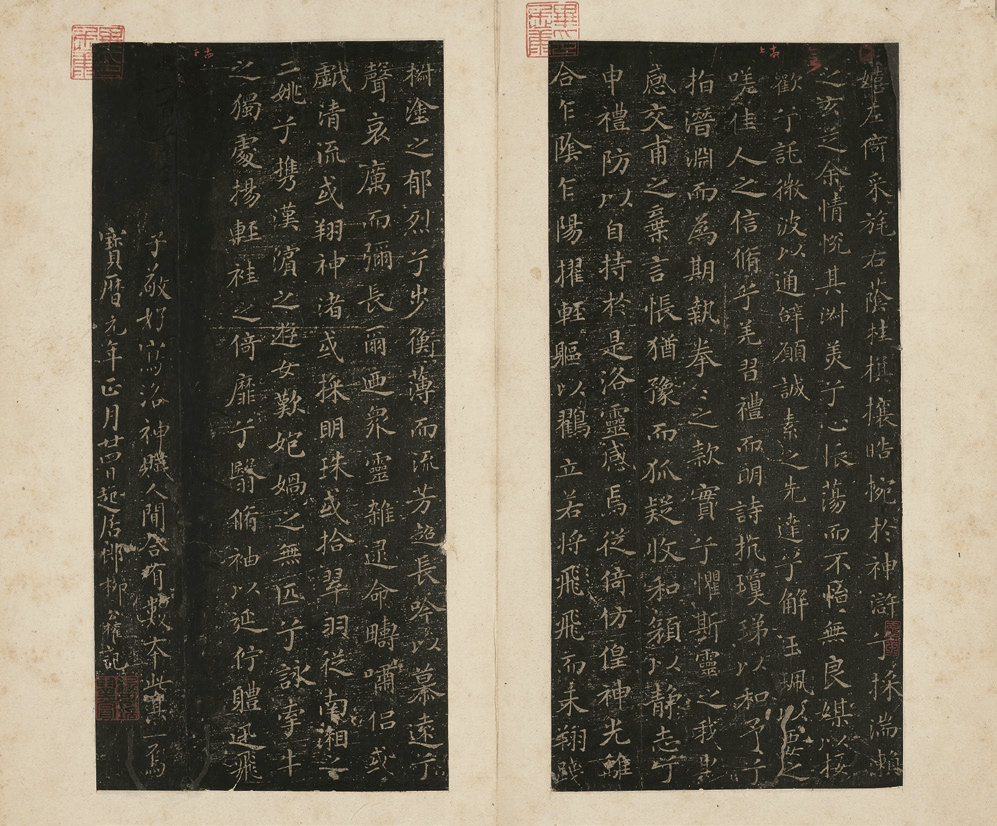 嬉左倚采旄右蔭桂棋攘皓捥於神滸兮採湍瀨
之玄芝余情悅其淑美兮心振蕩而不怡無良媒以接
歡兮託微波以通辭願誠素之先達兮解玉珮以要之
嗟佳人之信脩兮羌習禮而明詩抗瓊珶以和予兮
指潛淵而為期執拳〻之款實兮懼斯靈之我
感交甫之棄言悵猶豫而狐疑收和顏以靜志兮
申禮防以自持於是洛靈感焉徙倚仿偟神光離
合乍陰乍陽擢輕軀以鶴立若將飛飛而未翔踐
樹塗之郁烈兮步衡薄而流芳超長吟以慕遠兮
聲哀厲而彌長爾迺眾靈雜遝命疇嘯侶或
戲清流或翔神渚或採明珠或拾翠羽從南湘之
二姚兮攜漢濱之遊女歎妃媧之無匹兮詠牽牛
之獨處揚輕袿之倚靡兮翳脩袖以延佇體迅飛
子敬好寫洛神人間合有數本此其一焉
寶曆元年正月廿四日起居郎柳公權記